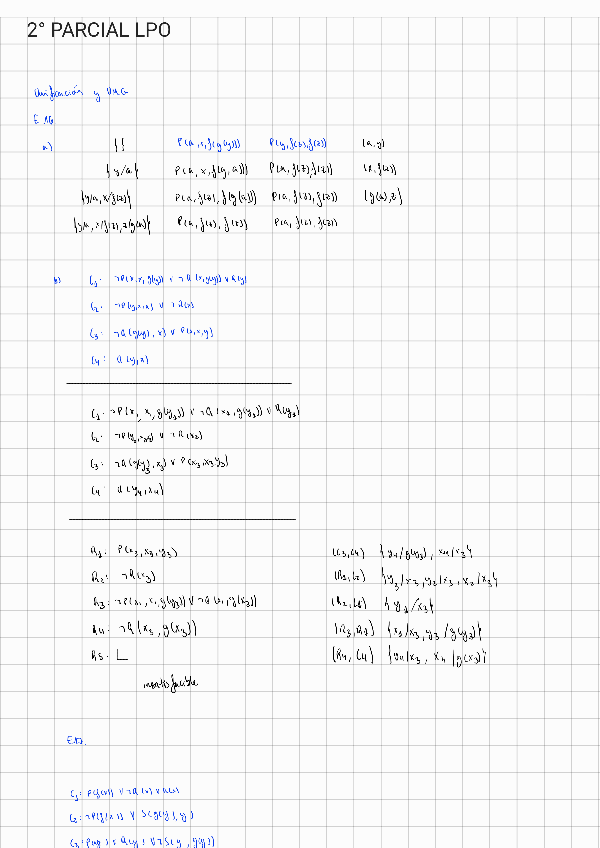 2° PARCIAL LPO
Unificación y UMG
E
a) { } P(a,x,f(g(y))) P(y,f(z),f(z)) (a,y)
{y/a} P(a,x,f(g,a))) P(a,f(z),f(z)) (x,f(z))
{y/a, x/f(z)} P(a,f(z),f(g(a))) P(a,f(z),f(z)) (g(a),z)
{y/a, x/f(z), z/g(a)} P(a,f(z),f(z)) P(a,f(z),f(z))
b) C₁: ¬P(x,x,g(y)) ∨ ¬Q(x,g(y)) ∨ R(y)
C₂: ¬P(y,x,x) ∨ ¬R(x)
C₃: ¬Q(g(y),x) ∨ P(x,x,y)
C₄: Q(y,x)
C₁: ¬P(x₁,x₁,g(y₁)) ∨ ¬Q(x₁,g(y₁)) ∨ R(y₁)
C₂: ¬P(y₂,x₂,x₂) ∨ ¬R(x₂)
C₃: ¬Q(g(y₃),x₃) ∨ P(x₃,x₃,y₃)
C₄: Q(y₄,x₄)
R₁: P(x₃,x₃,y₃) (C₃,C₄) {y₄/g(y₃), x₄/x₃}
R₂: ¬R(x₃) (R₁,C₂) {y₃/x₃, y₂/x₃, x₂/x₃}
R₃: ¬P(x₁,x₁,g(x₃)) ∨ ¬Q(x₁,g(x₃)) (R₂,C₁) {y₁/x₃}
R₄: ¬Q(x₃,g(x₃)) (R₃,R₁) {x₁/x₃, y₃/g(y₃)}
R₅: (R₄,C₄) {y₄/x₃, x₄/g(x₃)}
insatisfacible
C₁: P(f(x)) ∨ ¬Q(x) ∨ R(x)
C₂: ¬P(f(x)) ∨ S(g(y),y)